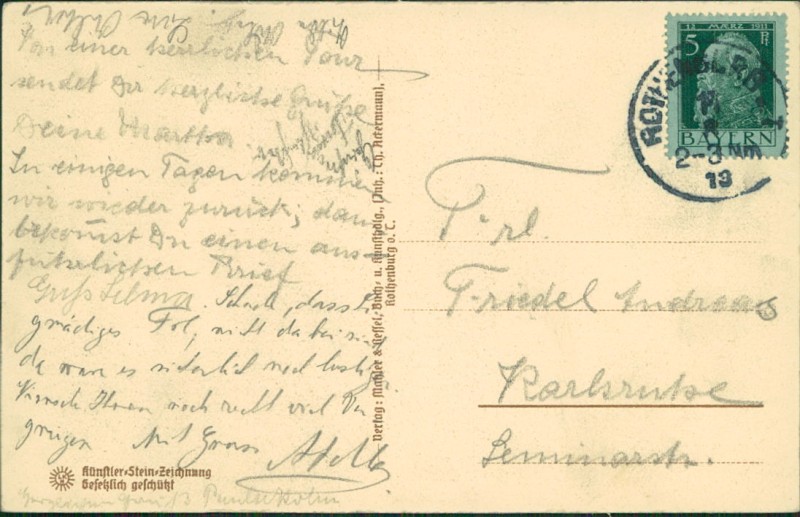 Von einer herrlichen Tour
sendet Dir herzliche Grüße
Deine Martha.
In einigen Tagen kommen
wir wieder zurück; dann
bekommst Du einen aus-
führlichen Brief
Gruß Selma. Schade, dass
gnädiges Frl. nicht dabei sind
da wäre es sicherlich noch lustig
Wünsche Ihnen noch recht viel Ver-
gnügen Mit Gruss
Künstler-Stein-Zeichnung
Gesetzlich geschützt
Verlag: Mahler & Hessel, Buch- u. Kunsthdlg., (Inh.: Th. Ackermann),
Rothenburg o. T.
12 MÄRZ 1911
5 Pf
BAYERN
ROTHENBURG
2-3 NM
13
Frl.
Friedel Andreas
Karlsruhe
Seminarstr.